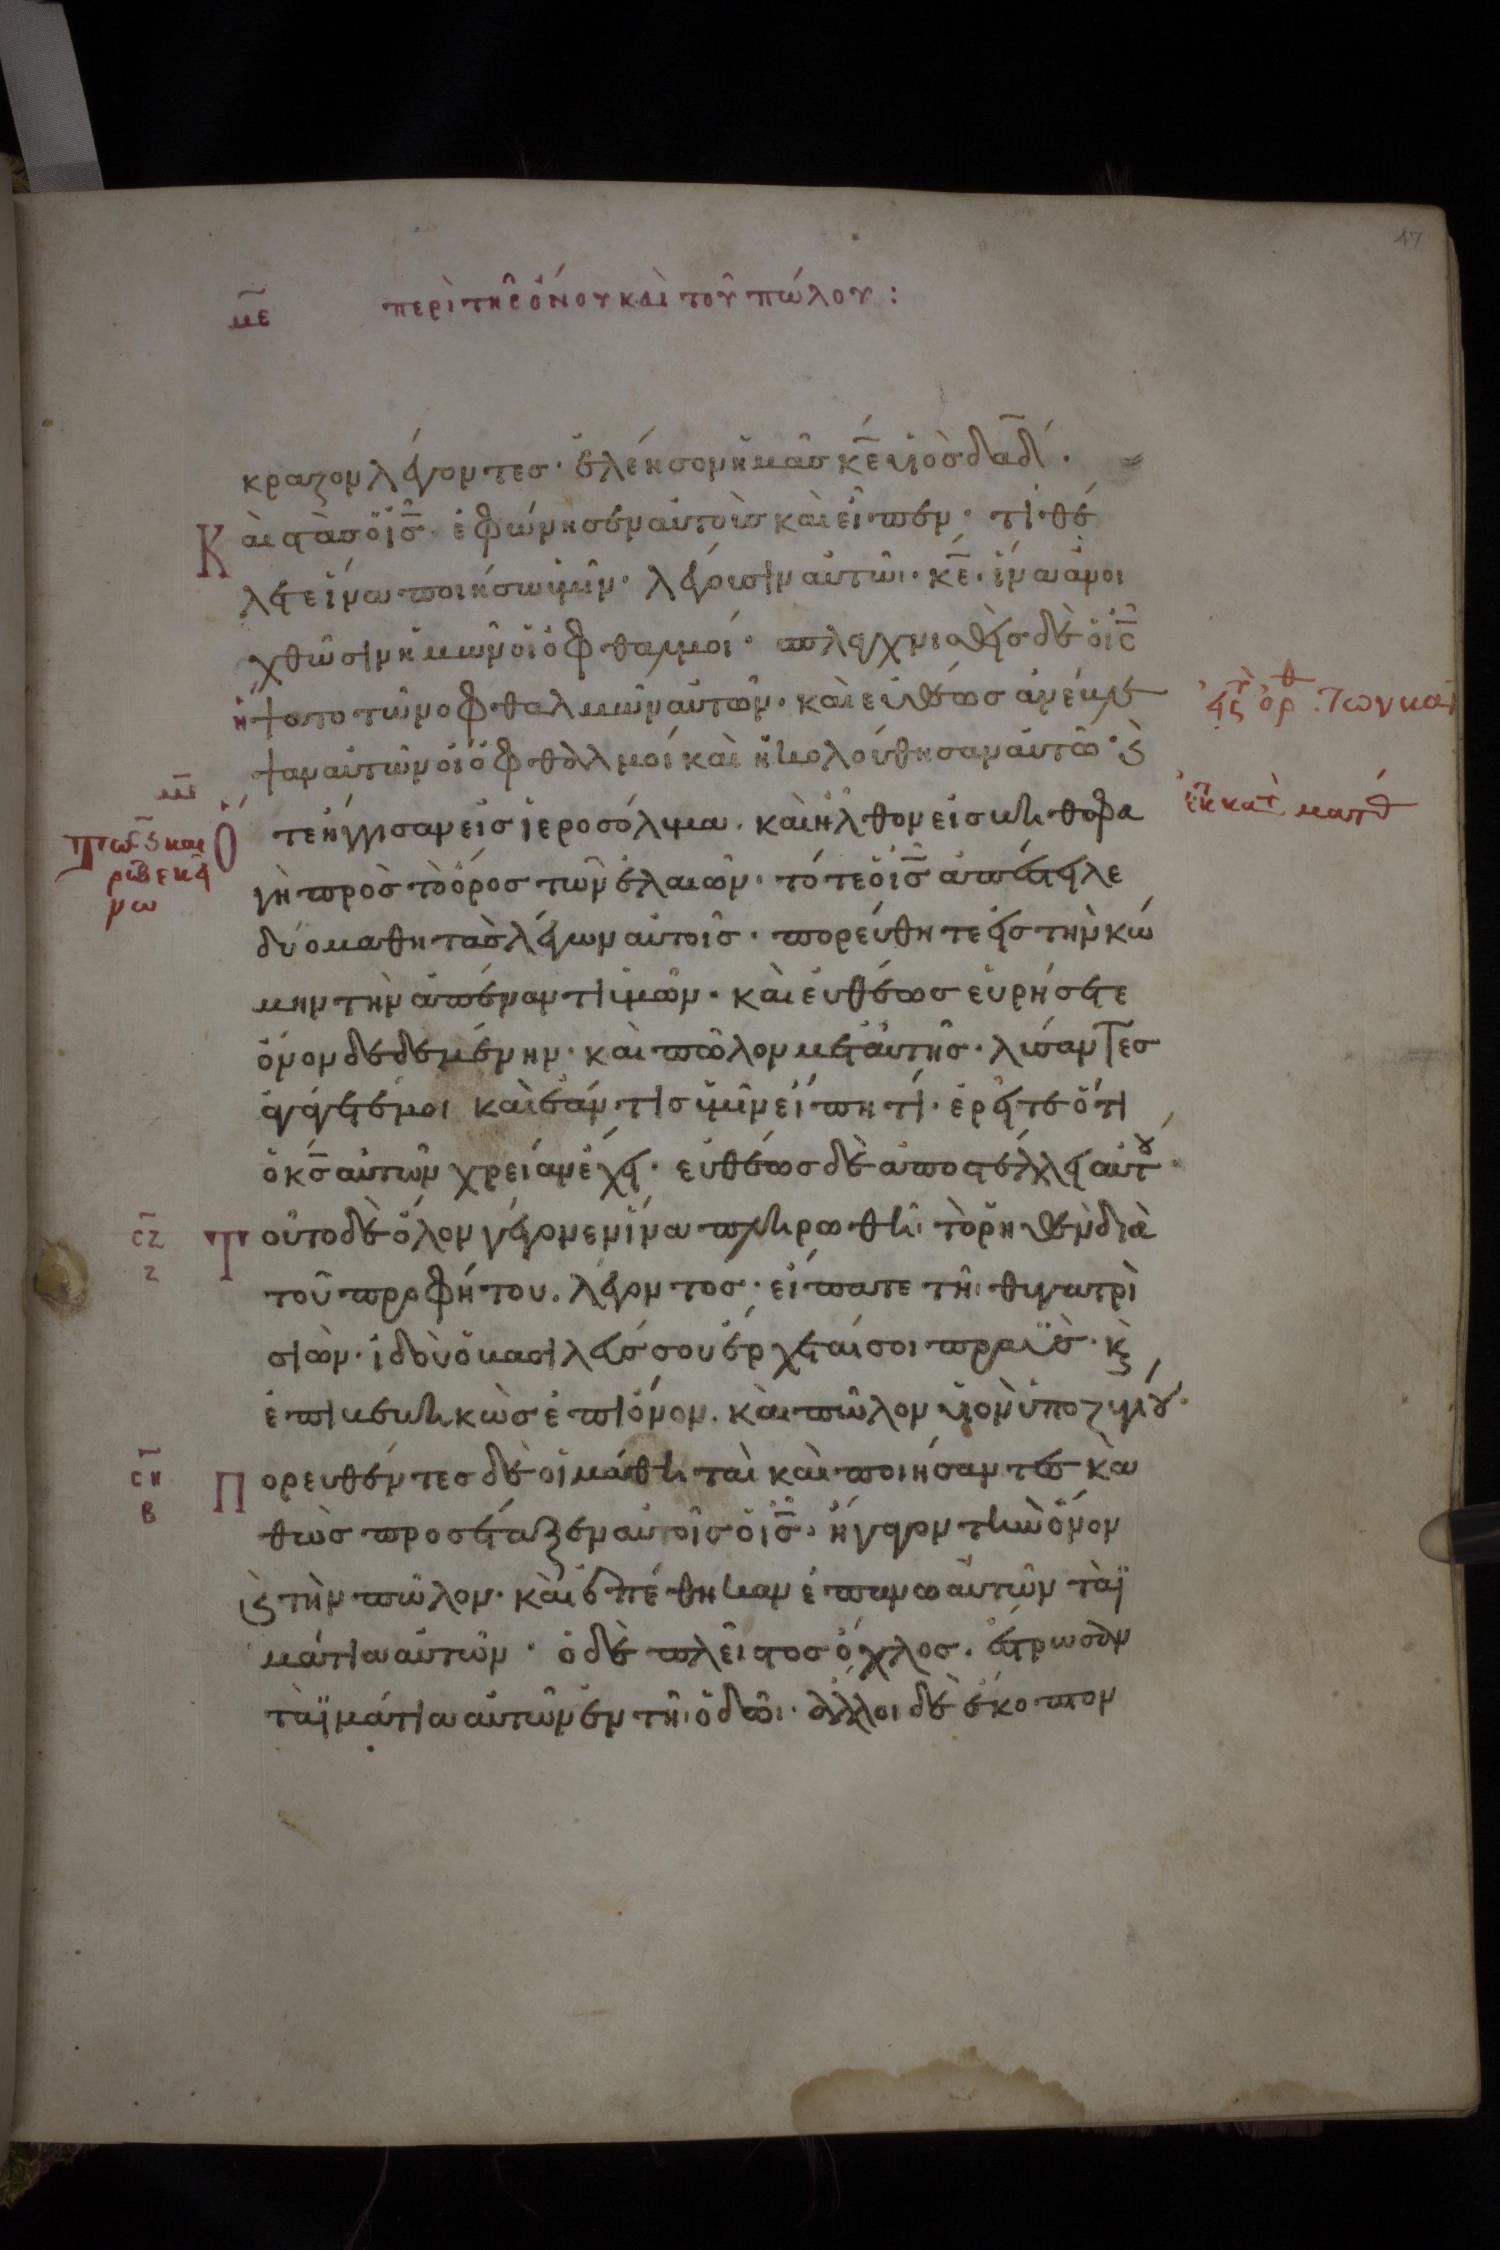 17
με περὶ τῆς ὄνου καὶ τοῦ πώλου :
κραζον λέγοντες · ἐλέησον ἡμᾶς κ̅ε̅ υἱὸς δα̅δ ·
Και στὰς ὁ ι̅ς̅ · ἐφώνησεν αὐτοὺς καὶ εἶπεν · τί θέ
λετε ἵνα ποιήσω ὑμῖν · λέγουσιν αὐτῶι · κ̅ε̅ · ἵνα ἀνοι
χθῶσιν ἡμῶν οἱ ὀφθαλμοί · σπλαγχνισθεὶς δὲ ὁ ι̅ς̅
ἥψατο τῶν ὀφθαλμῶν αὐτῶν · καὶ εὐθέως ἀνέβλε
ψαν αὐτῶν οἱ ὀφθαλμοί καὶ ἠκολούθησαν αὐτῶ ·
Ὅτε ἤγγισαν εἰς ἱεροσόλυμα · καὶ ἦλθον εἰς βηθσφα
γὴ πρὸς τὸ ὄρος τῶν ἐλαιῶν · τότε ὁ ι̅ς̅ ἀπέστειλε
δύο μαθητὰς λέγων αὐτοῖς · πορεύθητε εἰς τὴν κώ
μην τὴν ἀπέναντι ὑμῶν · καὶ εὐθέως εὑρήσετε
ὄνον δεδεμένην · καὶ πῶλον μετ αὐτῆς · λύσαντες
ἀγάγετέ μοι καὶ ἐάν τις ὑμῖν εἴπη τί · ἐρεῖτε ὅτι
ὁ κ̅ς̅ αὐτῶν χρείαν ἔχει · εὐθέως δὲ ἀποστέλλει αὐτού ·
σ̅ζ̅ Τοῦτο δὲ ὅλον γέγονεν ἵνα πληρωθῆι τὸ ῥηθὲν διὰ
ζ τοῦ προφήτου · λέγοντος · εἴπατε τῆι θυγατρὶ
σιών · ἰδοὺ ὁ βασιλεύς σου ἔρχεταί σοι πραΰς · κὶ
ἐπιβεβηκὼς ἐπὶ ὄνον · καὶ πῶλον υἱὸν ὑποζυγίου ·
σ̅η̅ Πορευθέντες δὲ οἱ μαθηταὶ καὶ ποιήσαντες κα
β θὼς προσέταξεν αὐτοῖς ὁ ι̅ς̅ · ἤγαγον τὴν ὄνον
κὶ τὴν πῶλον · καὶ ἐπέθηκαν ἐπάνω αὐτῶν τὰ ἱ
μάτια αὐτῶν · ὁ δὲ πλεῖστος ὄχλος · ἔστρωσαν
τὰ ἱμάτια αὐτῶν ἐν τῆι ὁδῶι · ἄλλοι δὲ ἔκοπτον
ἐκ κατ ματθ
με